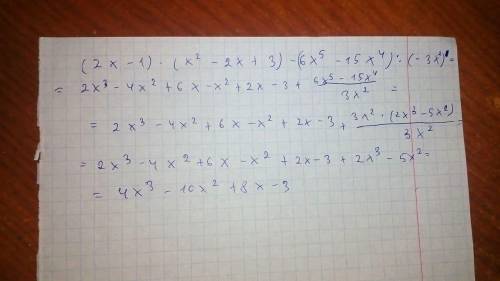 (2x - 1) · (x² - 2x + 3) - (6x⁵ - 15x⁴) : (-3x²) =
= 2x³ - 4x² + 6x - x² + 2x - 3 + (6x⁵ - 15x⁴)/(3x²) =
= 2x³ - 4x² + 6x - x² + 2x - 3 + (3x² · (2x³ - 5x²))/(3x²) =
= 2x³ - 4x² + 6x - x² + 2x - 3 + 2x³ - 5x² =
= 4x³ - 10x² + 8x - 3